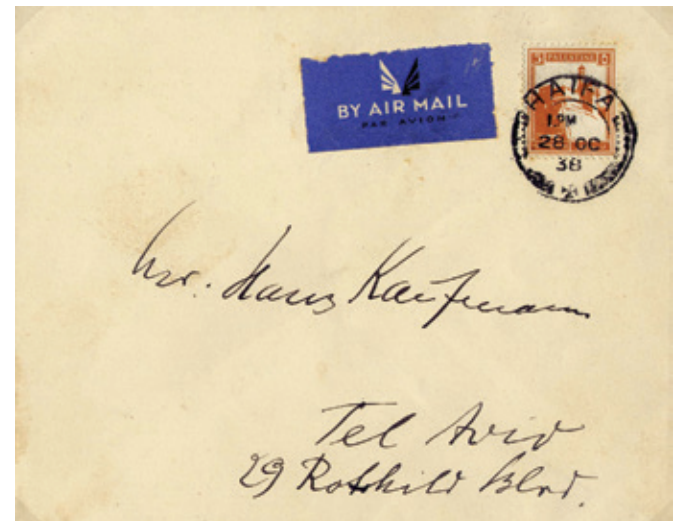 BY AIR MAIL
PAR AVION
PALESTINE
HAIFA
1. PM
28 OC
38
Mr. Hans Kaufmann
Tel Aviv
29 Rothild Blvd.